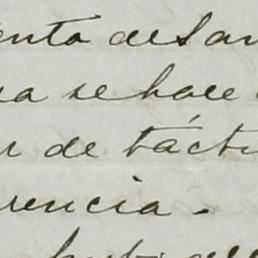 ento de San
a se hace
r de tácti
rencia.